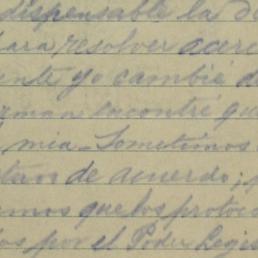 dispensable la de
para resolver acerc
ente yo cambié d
encontré qu
mia. Sometimos
de acuerdo;
emos que los protoco
os por el Poder Legis